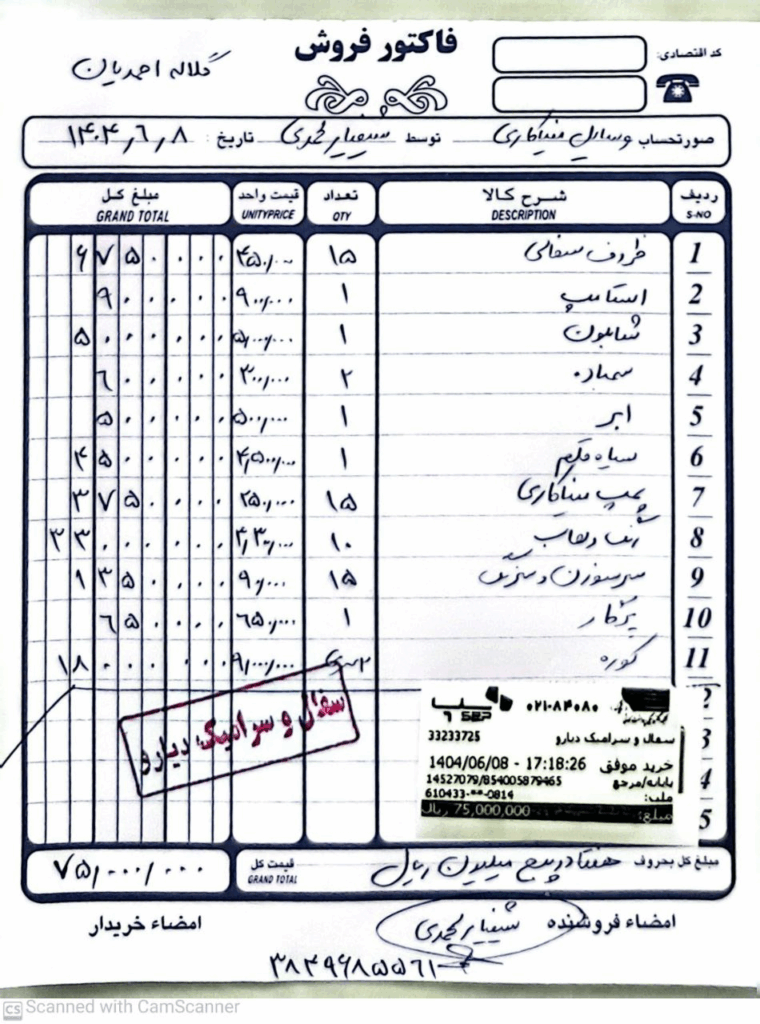 فاکتور فروش
کد اقتصادی:
گلاله احمدیان
صورتحساب وسایل میناکاری توسط تاریخ: ۱۴۰۴٫۶٫۸
ردیف S-NO شرح کالا DESCRIPTION تعداد QTY قیمت واحد UNITYPRICE مبلغ کل GRAND TOTAL
1 ظروف سفالی ۱۵ ۴۵۰٫۰۰۰ ۶۷۵۰۰۰۰
2 استامپ ۱ ۹۰۰٫۰۰۰ ۹۰۰۰۰۰
3 شابلون ۱ ۵٫۰۰۰٫۰۰۰ ۵۰۰۰۰۰۰
4 سمباده ۲ ۳۰۰٫۰۰۰ ۶۰۰۰۰۰
5 ابر ۱ ۵۰۰٫۰۰۰ ۵۰۰۰۰۰
6 سیاه قلم ۱ ۴٫۵۰۰٫۰۰۰ ۴۵۰۰۰۰۰
7 پمپ میناکاری ۱۵ ۲۵۰٫۰۰۰ ۳۷۵۰۰۰۰
8 رنگ و لعاب ۱۰ ۳٫۳۰۰٫۰۰۰ ۳۳۰۰۰۰۰۰
9 سرسوزن و سرنگ ۱۵ ۹۰٫۰۰۰ ۱۳۵۰۰۰۰
10 پرگار ۱ ۶۵۰٫۰۰۰ ۶۵۰۰۰۰
11 کوره ۲ سری ۹٫۰۰۰٫۰۰۰ ۱۸۰۰۰۰۰۰
2
3
4
5
سفال و سرامیک دیارو
سپ
SEP
۰۲۱-۸۴۰۸۰
33233725
سفال و سرامیک دیارو
خرید موفق 1404/06/08 - 17:18:26
پایانه/مرجع
14527079/854005879465
610433-**-0814
مبلغ: 75,000,000 ریال
مبلغ کل بحروف هفتاد و پنج میلیون ریال قیمت کل GRAND TOTAL ۷۵٫۰۰۰٫۰۰۰
امضاء فروشنده
امضاء خریدار
۳۸۴۹۶۸۵۵۶۱
CS Scanned with CamScanner